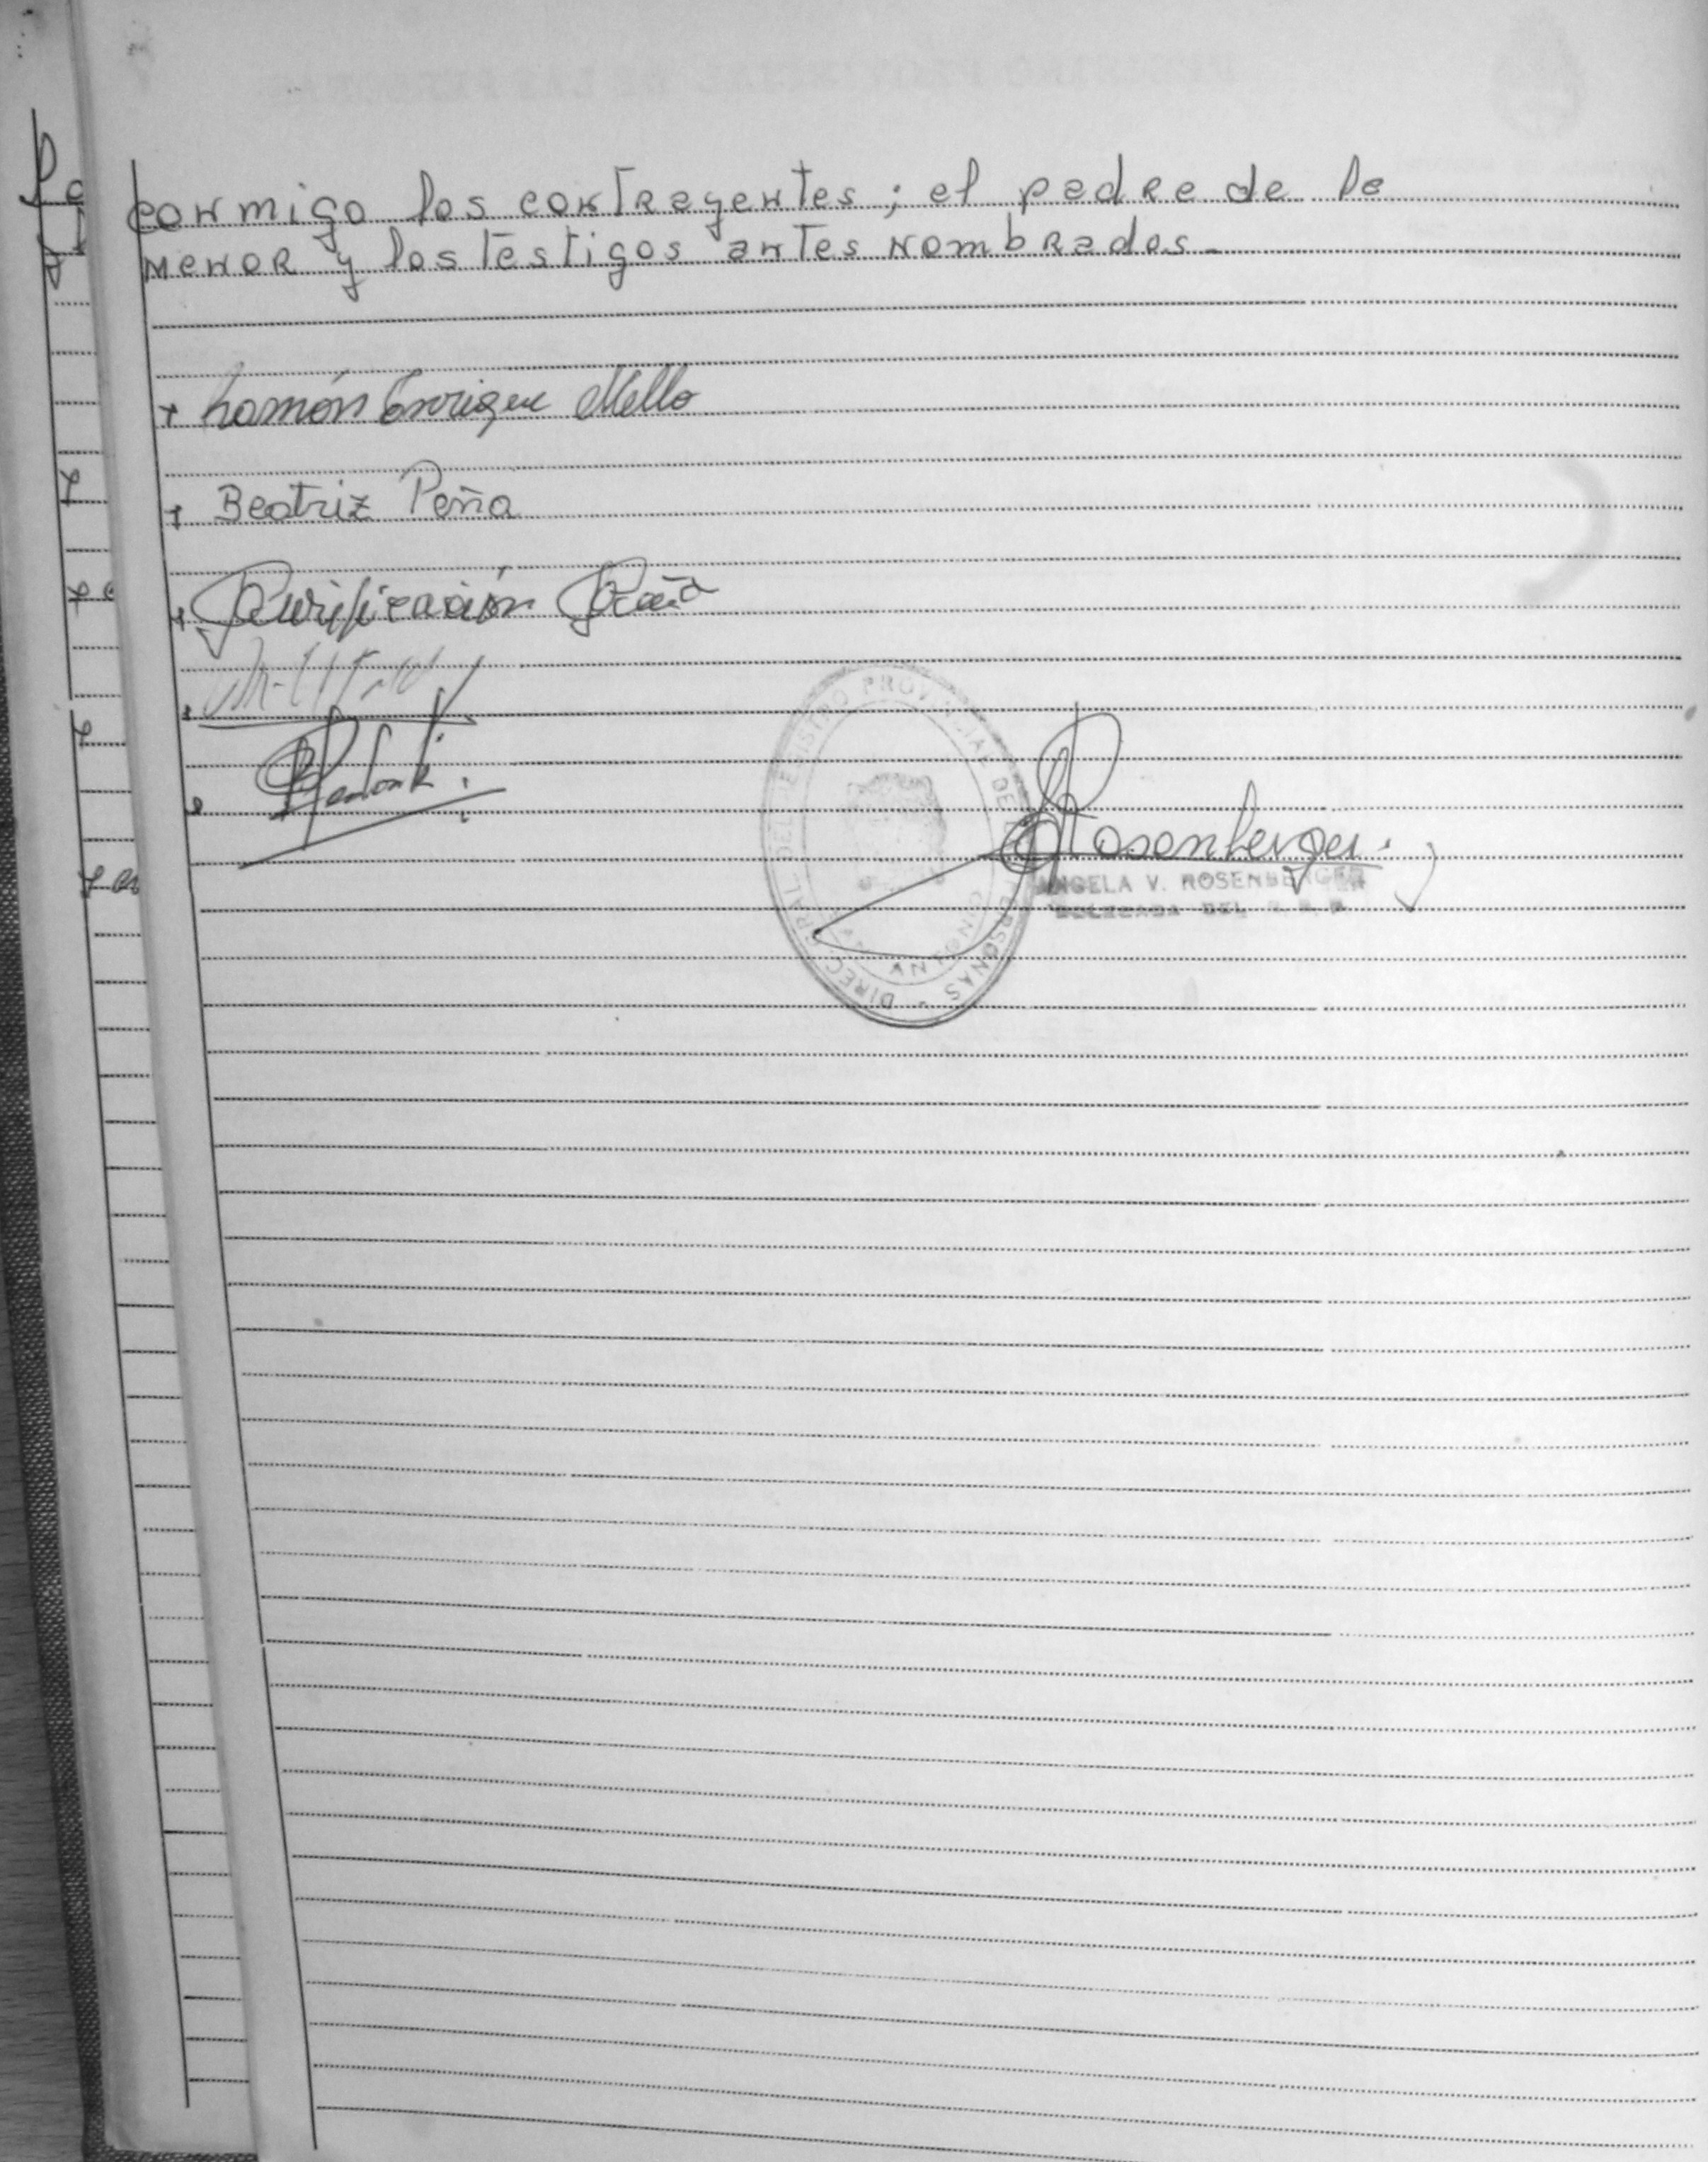 conmigo los contrayentes; el padre de la
menor y los testigos antes nombrados.-
Ramón Enrique Mello
Beatriz Peña
Purificación Peña
Rosenberger.
ANGELA V. ROSENBERGER
DELEGADA DEL R. P. P.
DIREC. GRAL. DEL REGISTRO PROVINCIAL DE LAS PERSONAS